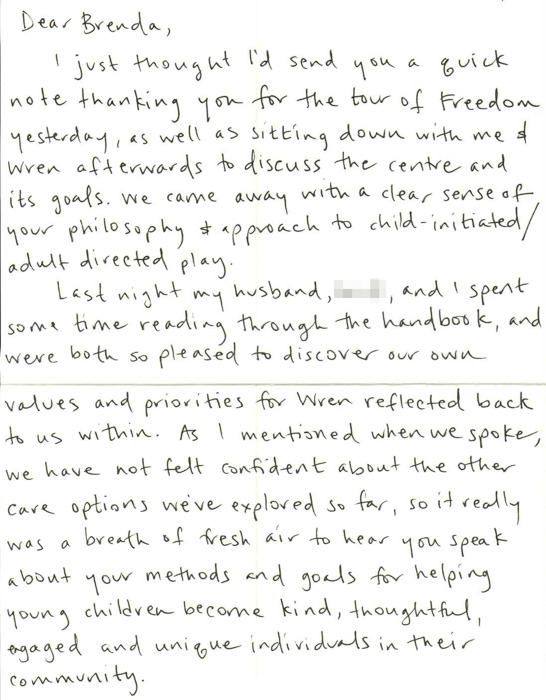 Dear Brenda,
I just thought I'd send you a quick
note thanking you for the tour of Freedom
yesterday, as well as sitting down with me &
Wren afterwards to discuss the centre and
its goals. We came away with a clear sense of
your philosophy & approach to child-initiated/
adult directed play.
Last night my husband, , and I spent
some time reading through the handbook, and
were both so pleased to discover our own
values and priorities for Wren reflected back
to us within. As I mentioned when we spoke,
we have not felt confident about the other
care options we've explored so far, so it really
was a breath of fresh air to hear you speak
about your methods and goals for helping
young children become kind, thoughtful,
engaged and unique individuals in their
community.